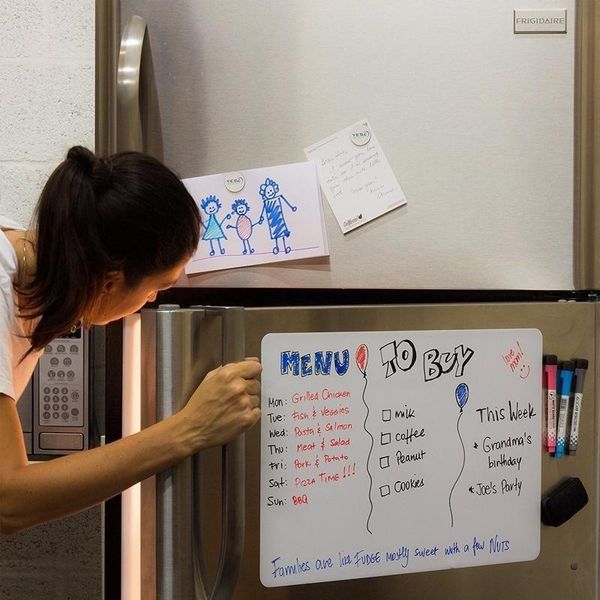 FRIGIDAIRE
YESZ
YESZ
MENU
Mon: Grilled Chicken
Tue: Fish & Veggies
Wed: Pasta & Salmon
Thu: Meat & Salad
Fri: Pork & Potato
Sat: Pizza Time!!!
Sun: BBQ
TO BUY
milk
coffee
Peanut
Cookies
love mom!
This Week
* Grandma's
birthday
* Joe's Party
Families are like FUDGE mostly sweet with a few NUTS